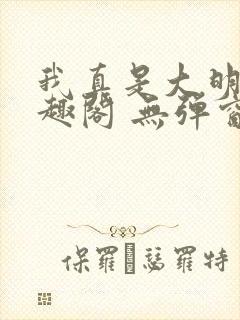 我真是大明
趣閣 無彈窗
保羅·瑟羅特